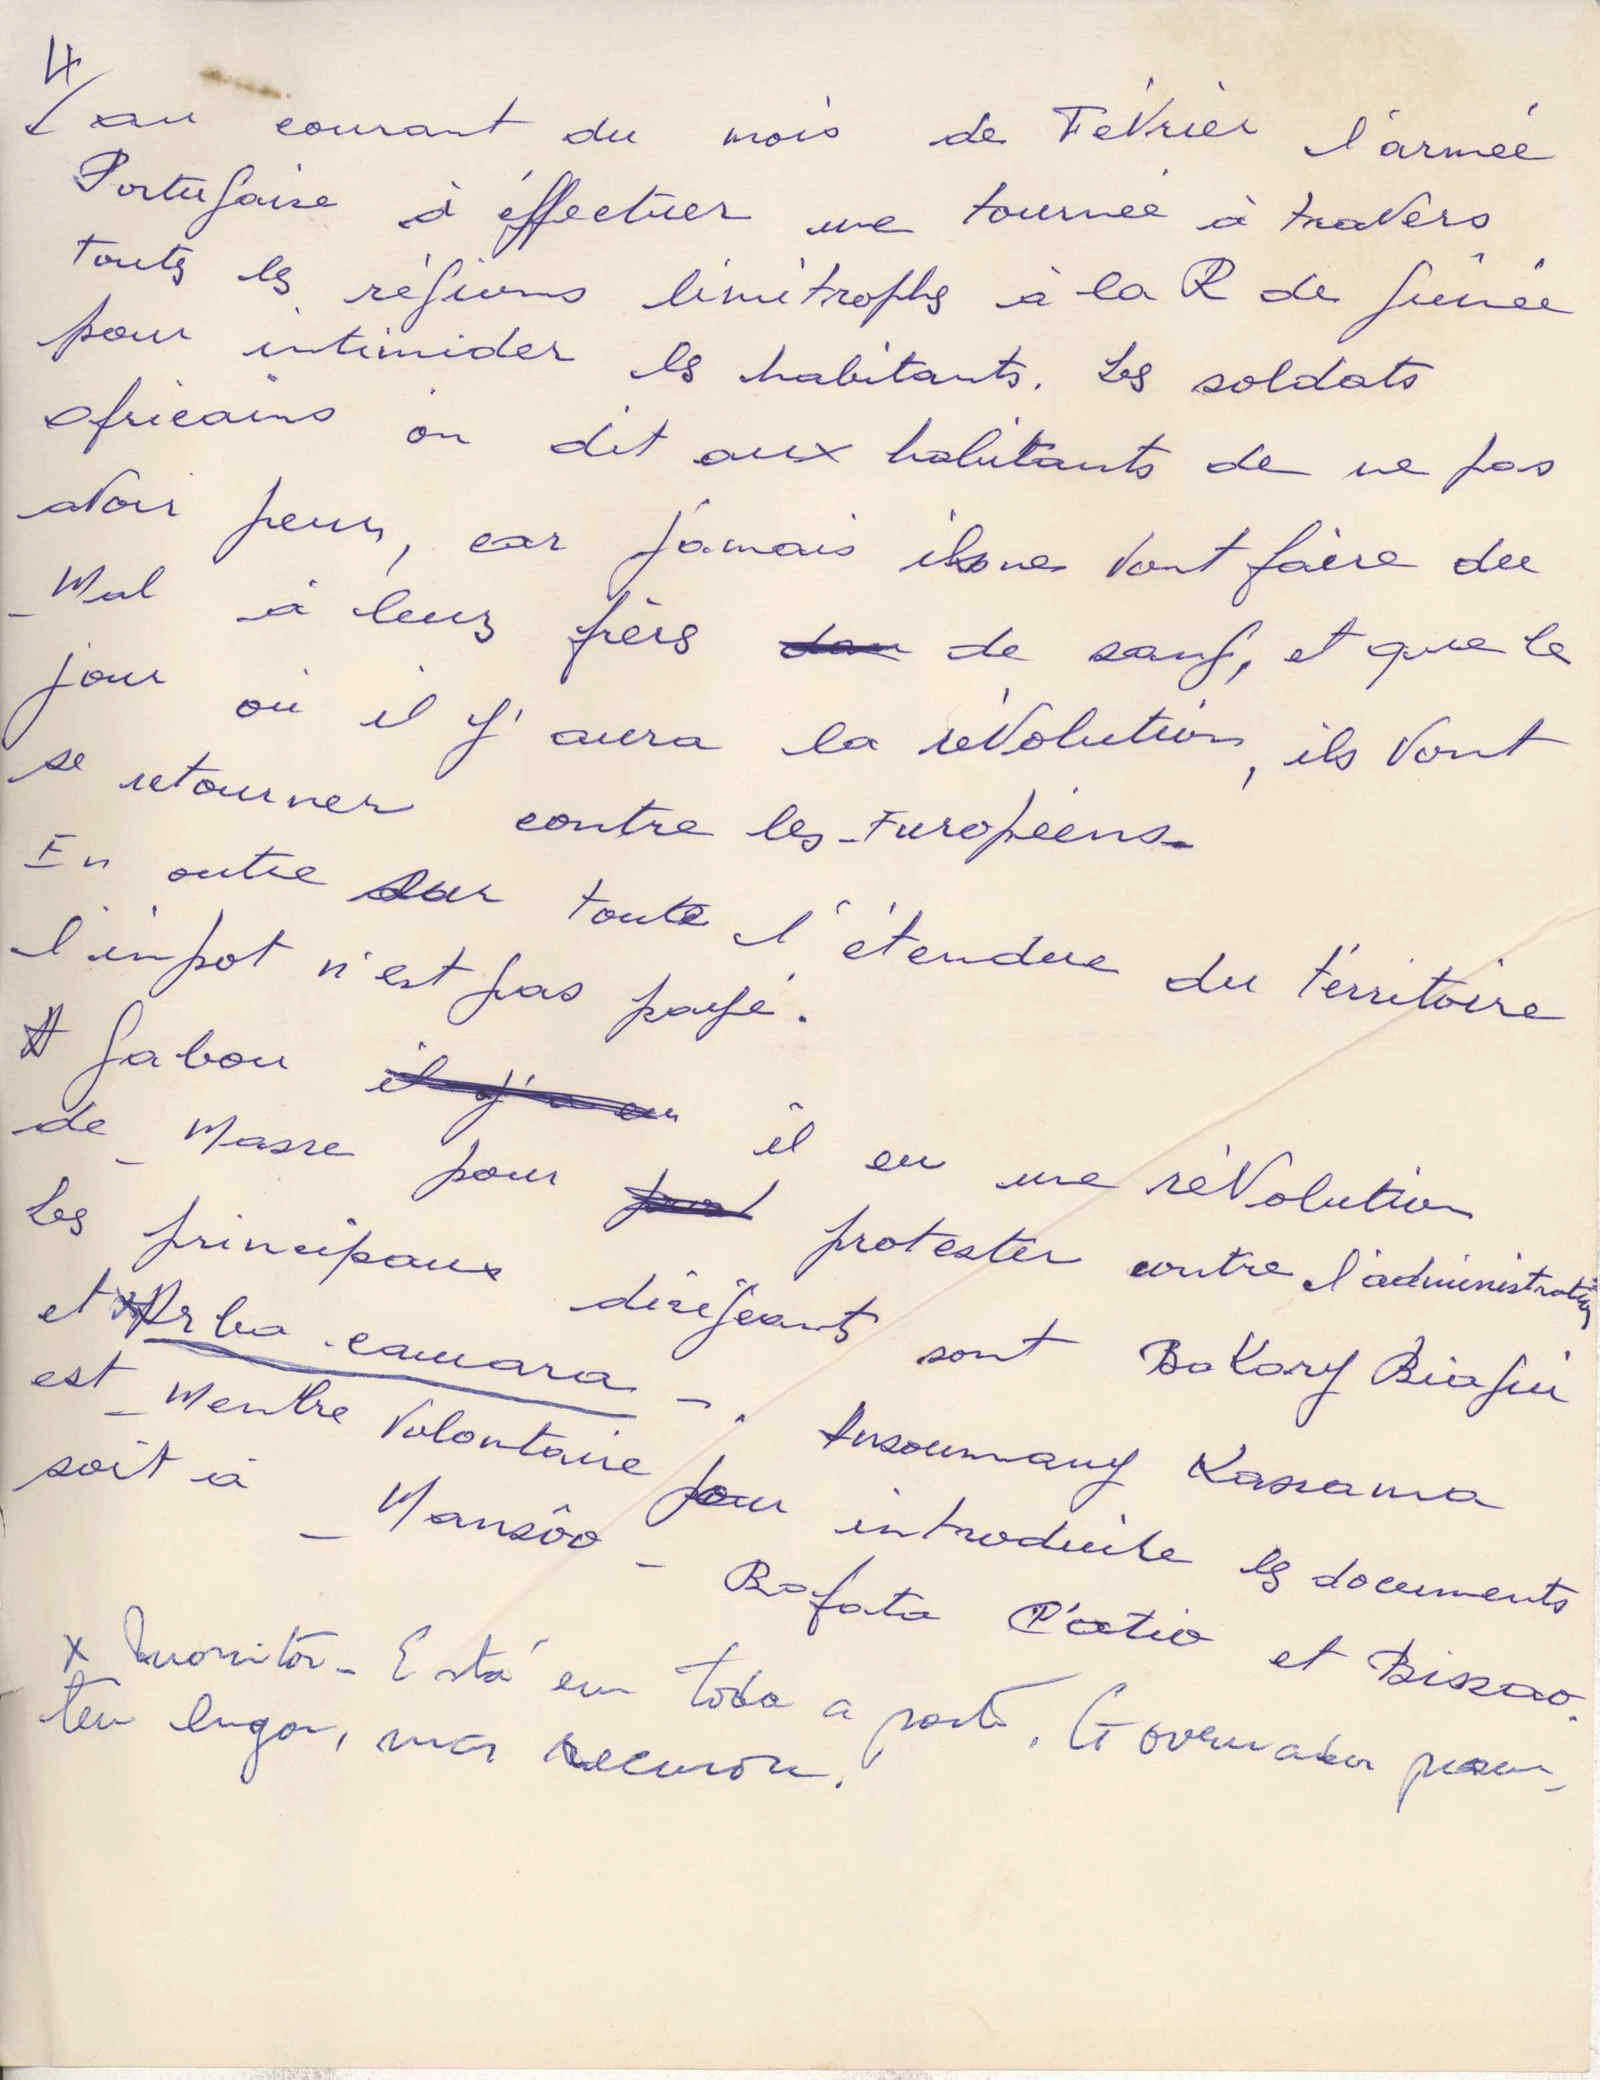 4
au courant du mois de Février l'armée
Portugaise à éffectuer une tournée à travers
touts les régions limitrophes à la R de Guinée
pour intimider les habitants. Les soldats
africains on dit aux habitants de ne pas
avoir peur, car jamais ils ne vont faire du
Mal à leurs frères de sang, et que le
jour où il y' aura la révolution, ils vont
se retourner contre les Européens.
En outre sur toute l'étendue du térritoire
l'inpot n'est pas payé.
A Gabou il y'a eu il eu une révolution
de Masse pour protester contre l'administration
Les principaux dirigeants sont Bakary Biagui
et Arba camara -. Ansoumany Kassama
est Mentre Volontaire pour introduire les documents
soit à Mansôo - Bafata Catio et Bissao.
x Monitor - Está em toda a parte. Governador
tem lugar, mas recusou.